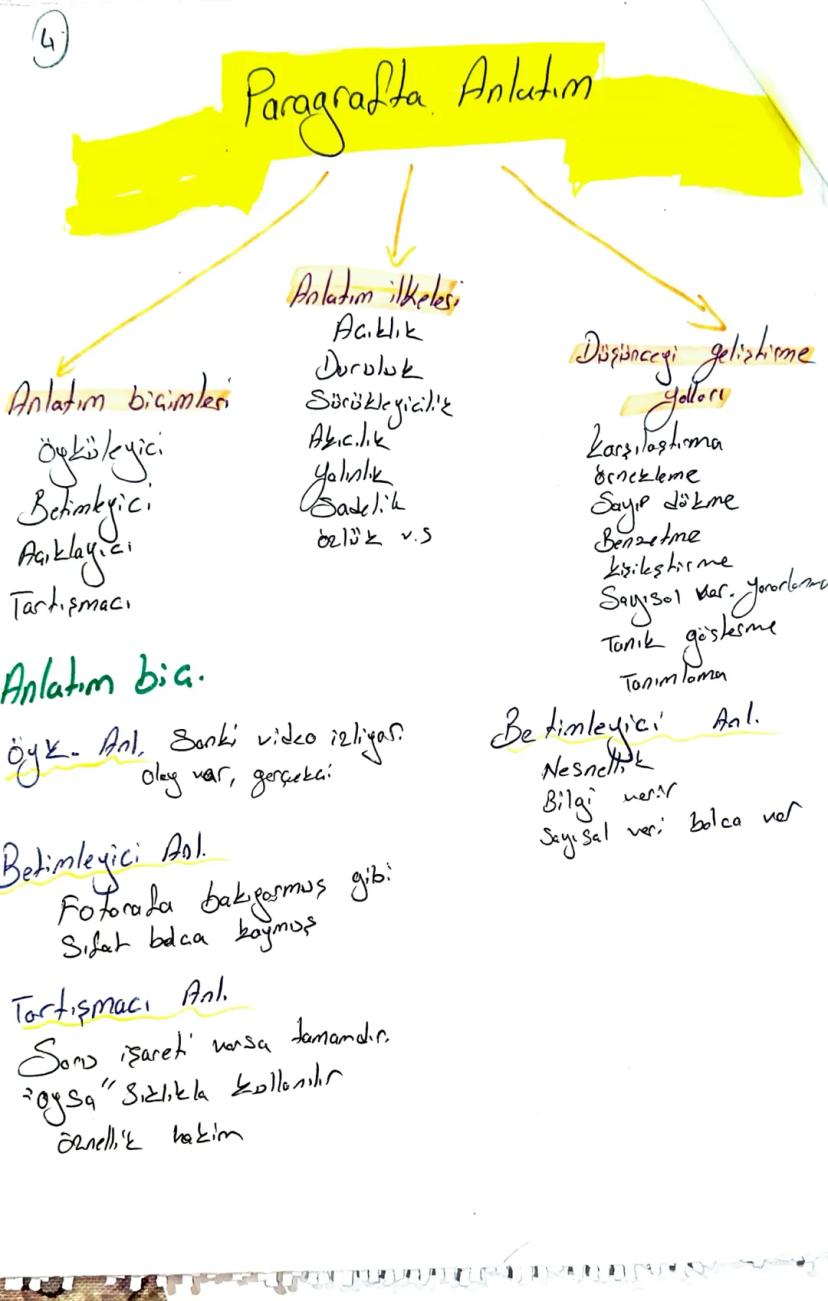 4
Paragrafta Anlatım
Anlatım biçimleri
Öyküleyici
Betimleyici
Açıklayıcı
Tartışmacı
Anlatım ilkeleri
Açıklık
Duruluk
Sürükleyicilik
Akıcılık
Yalınlık
Sadelik
özlük v.s
Düşünceyi geliştirme
yolları
Karşılaştırma
örnekleme
Sayıp dökme
Benzetme
kişileştirme
Sayısal ver. yorumlama
Tanık gösterme
Tanımlama
Anlatım biç.
Öyk. Anl. Sanki video izliyor.
Olay var, gerçekçi
Betimleyici Anl.
Fotorafa bakıyormuş gibi
Sıfat bolca koymuş
Tartışmacı Anl.
Soru işareti varsa tamamdır.
"oysa" sıklıkla kullanılır
öznellik hakim
Betimleyici Anl.
Nesnellik
Bilgi verir
Sayısal veri bolca var